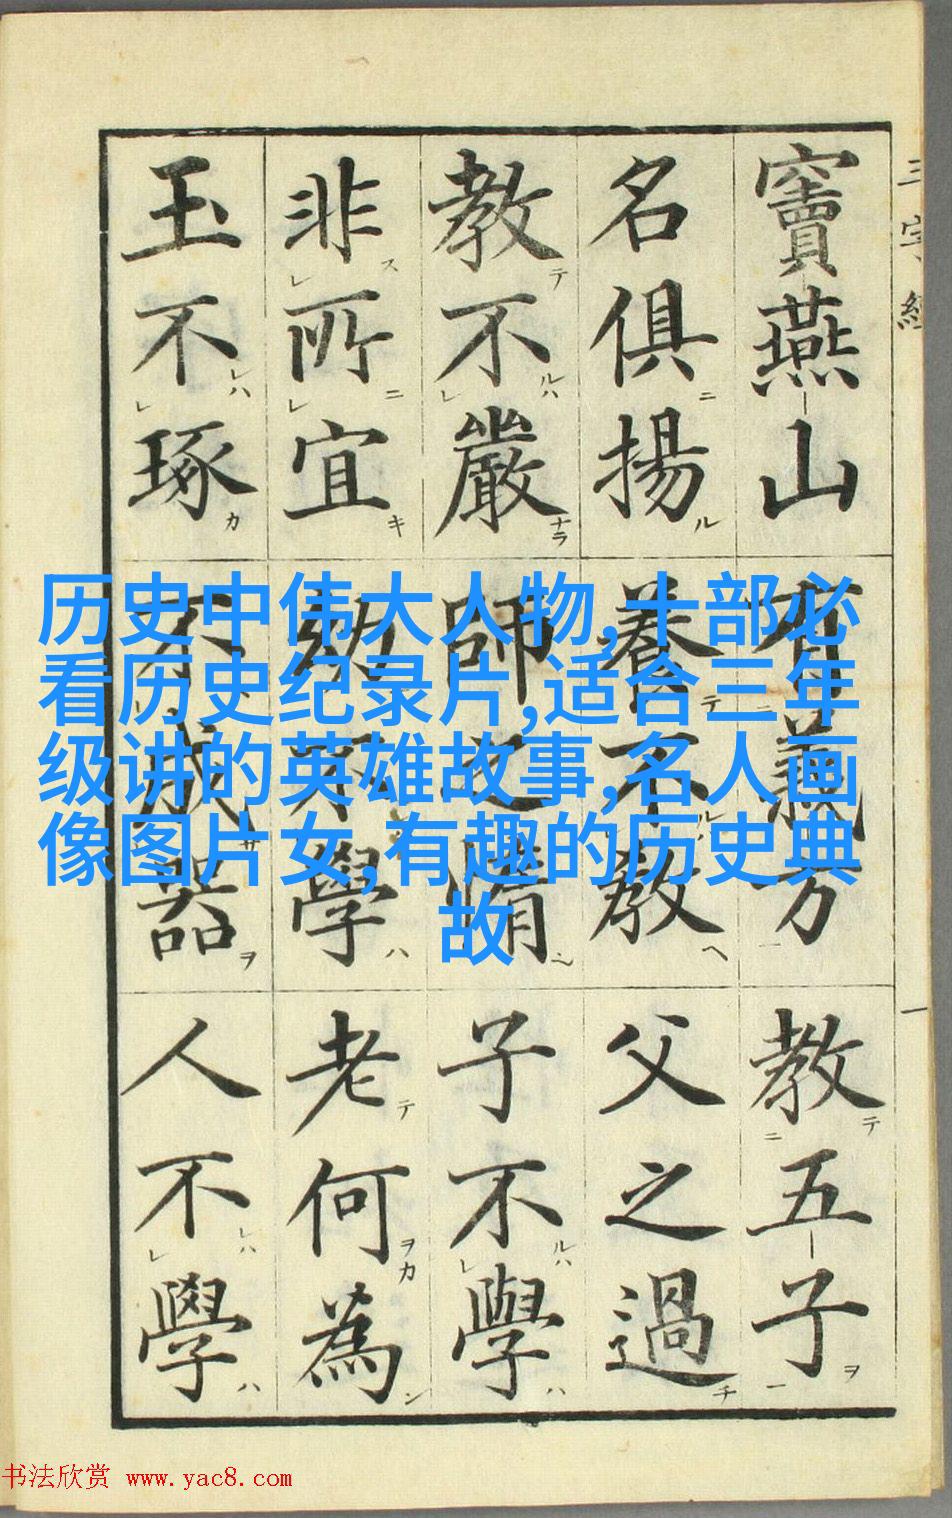 三字經
一
竇燕山有義方教五子
名俱揚養不教父之過
教不嚴師之惰子不學
非所宜幼不學老何為
玉不琢不成器人不學
历史中伟大人物,十部必
看历史纪录片,适合三年
级讲的英雄故事,名人画
像图片女,有趣的历史典
故
书法欣赏 www.yac8.com